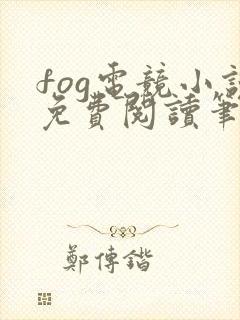 fog電競小說
免費閱讀筆
鄭傳鍇